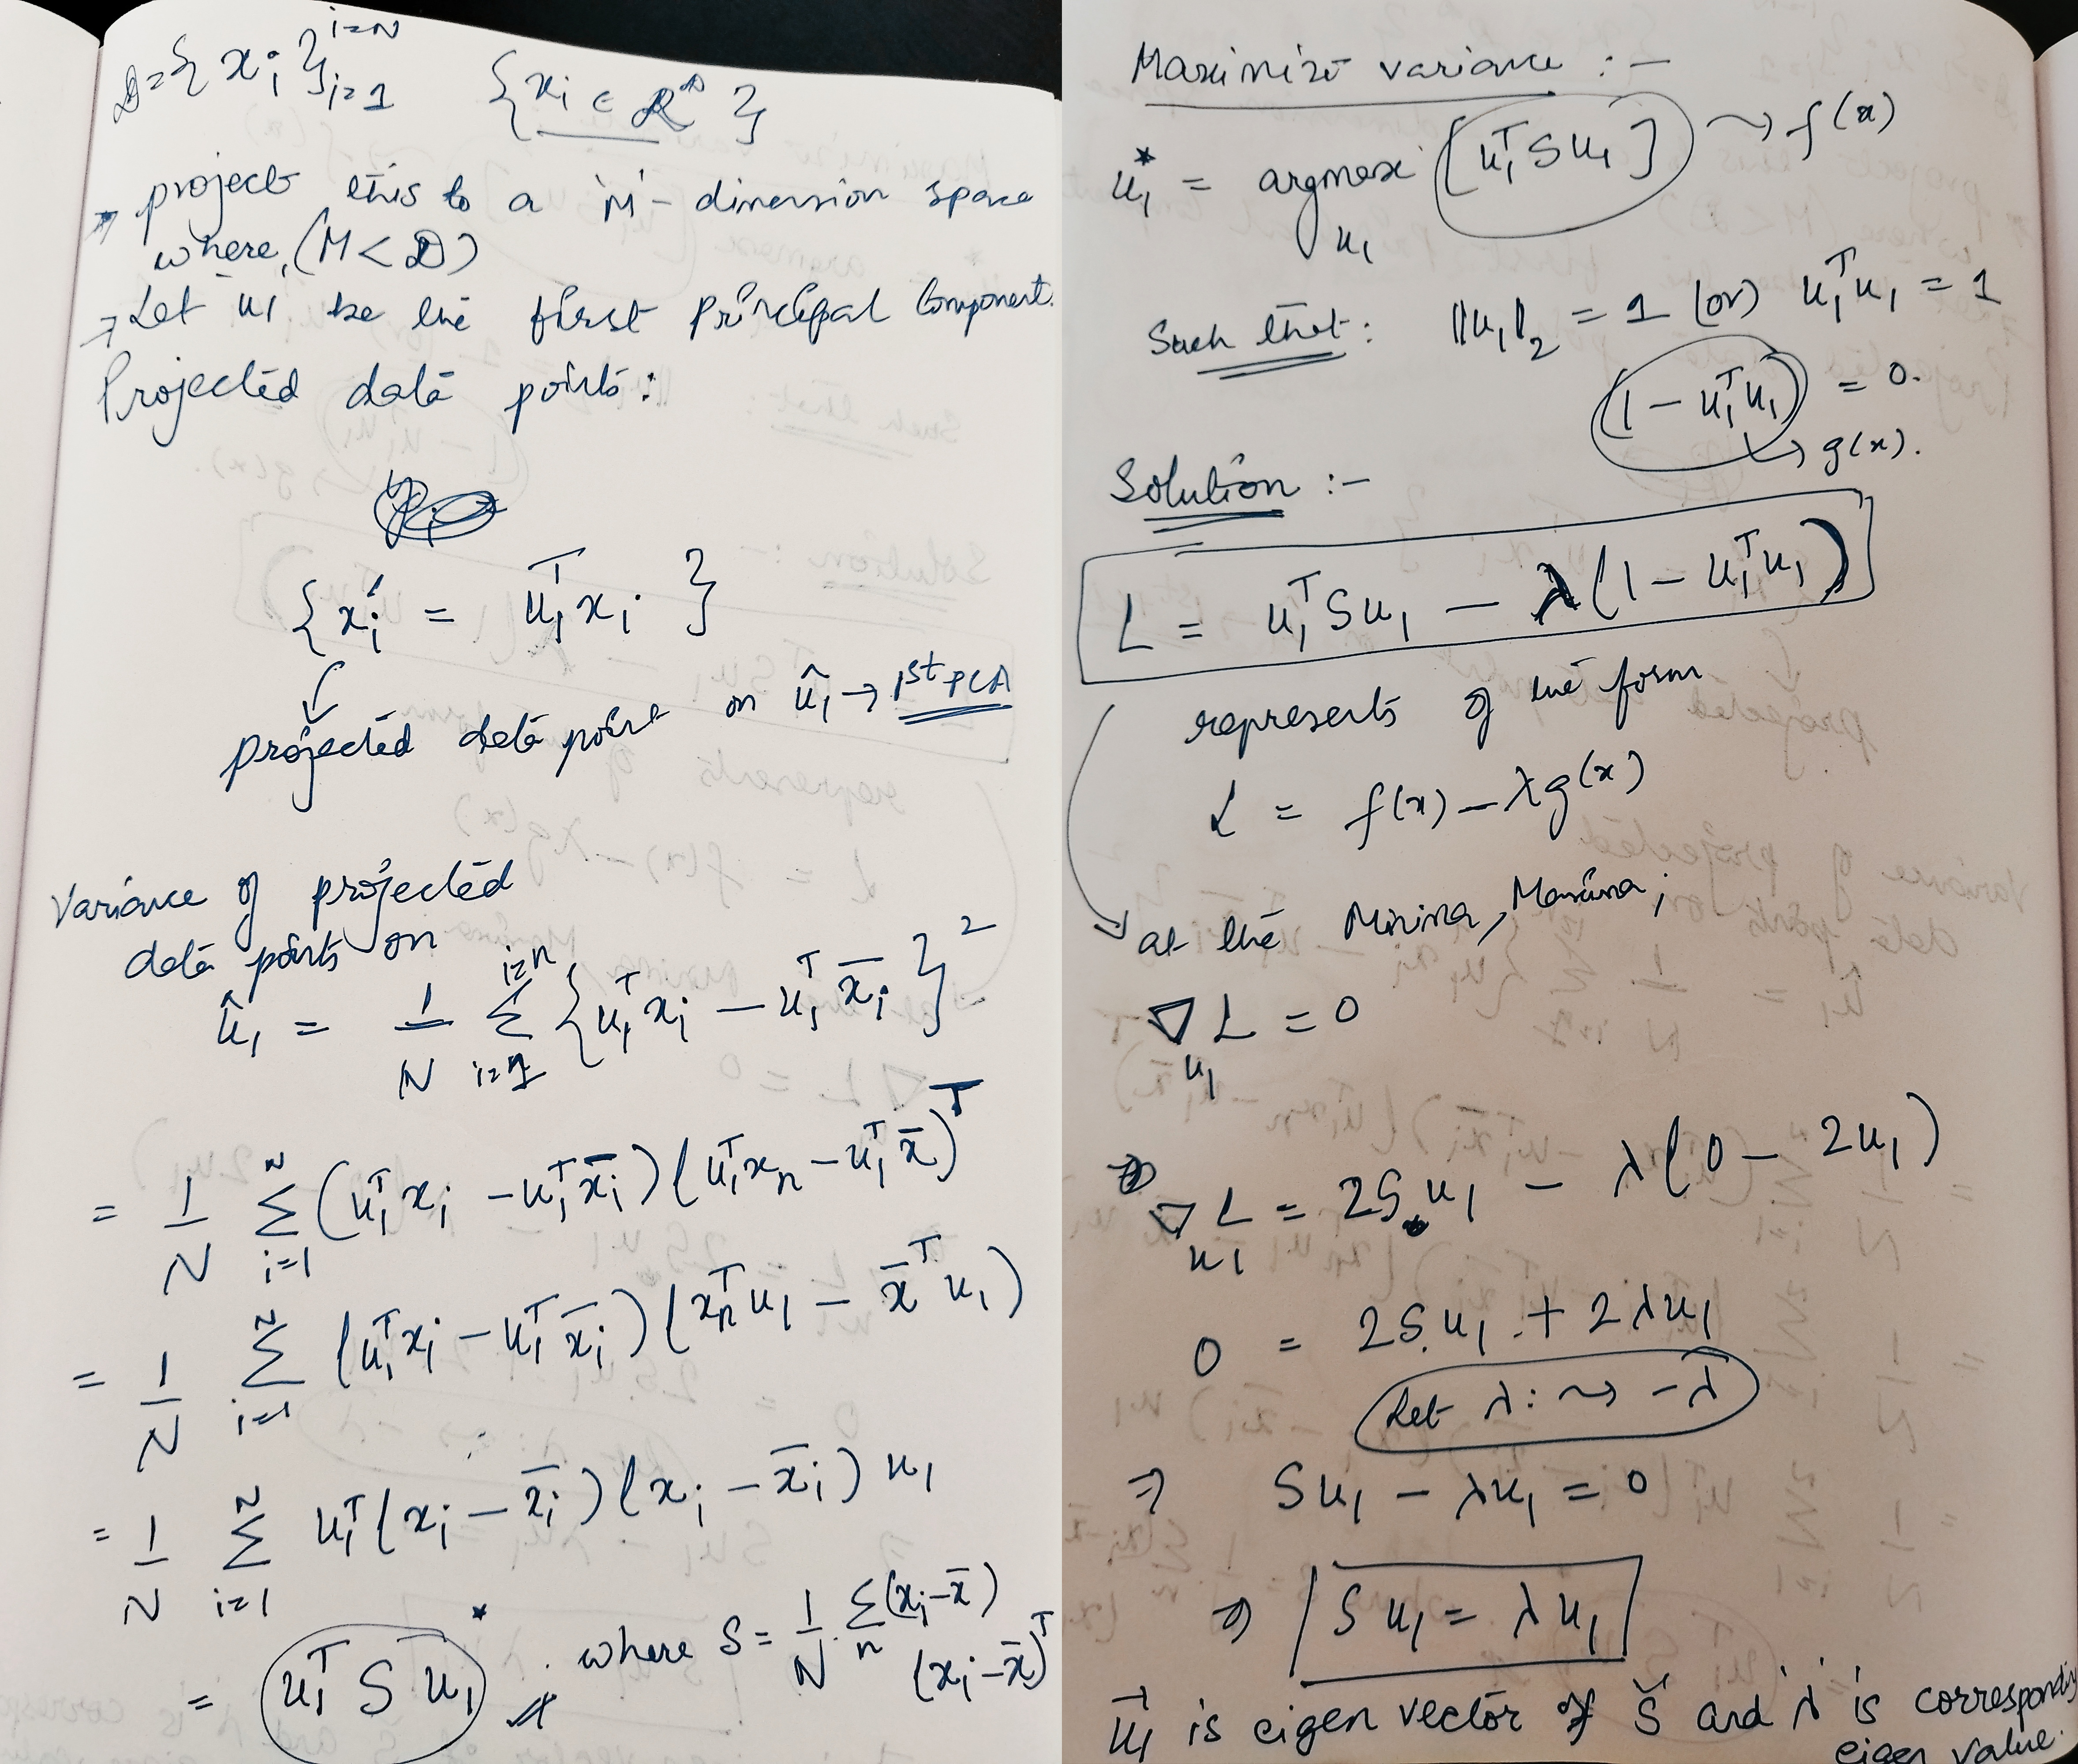 D = { x_i }_{i=1}^{i=N}    { x_i ∈ R^D }
→ project this to a 'M' - dimension space
where, (M < D)
→ Let u1 be the first principal Component.
Projected data points :
{ x_i' = u_1^T x_i }
projected data point on û_1 → 1st PCA
Variance of projected
data points on
û_1 = 1/N Σ_{i=1}^{i=n} { u_1^T x_i − u_1^T x̄_i }^2
= 1/N Σ_{i=1}^{N} (u_1^T x_i − u_1^T x̄_i) (u_1^T x_n − u_1^T x̄)^T
= 1/N Σ_{i=1}^{N} (u_1^T x_i − u_1^T x̄_i) (x_n^T u_1 − x̄^T u_1)
= 1/N Σ_{i=1}^{N} u_1^T (x_i − x̄_i) (x_i − x̄_i) u_1
= u_1^T S u_1 * where S = 1/N Σ_n (x_i − x̄)
(x_i − x̄)^T
Maximize variance : −
u_1^* = argmax_{u_1} [u_1^T S u_1] → f(x)
Such that : ||u_1||_2 = 1 (or) u_1^T u_1 = 1
(1 − u_1^T u_1) = 0.
→ g(x).
Solution :−
L = u_1^T S u_1 − λ(1 − u_1^T u_1)
represents of the form
L = f(x) − λg(x)
at the Minima, Maxima ;
∇_{u_1} L = 0
⇒ ∇_{u_1} L = 2S.u_1 − λ(0 − 2u_1)
0 = 2S.u_1 + 2λu_1
Let λ : → −λ
⇒ Su_1 − λu_1 = 0
⇒ Su_1 = λu_1
u_1 is eigen vector of 'S' and 'λ' is corresponding
eigen value.